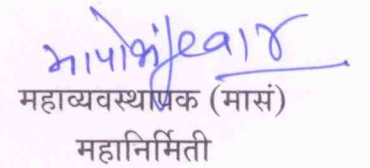 महाव्यवस्थापक (मासं)
महानिर्मिती